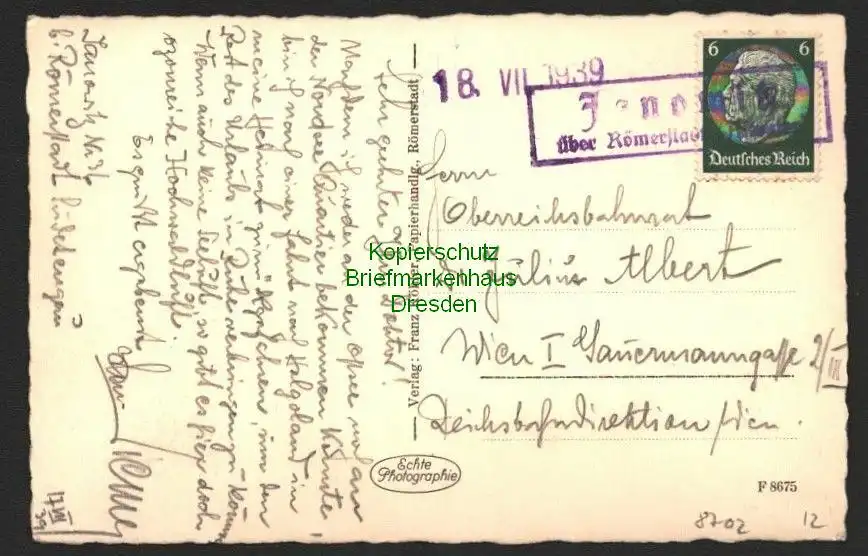 18. VII. 1939
Janowitz
über Römerstadt
6 6
Deutsches Reich
Herrn
Oberreichsbahnrat
Dr Julius Albert
Wien I Gauermanngasse 2/III
Reichsbahndirektion Wien.
Kopierschutz
Briefmarkenhaus
Dresden
Verlag: Franz Römer, Papierhandlg., Römerstadt
Echte
Photographie
F 8675
8702 12
Sehr geehrter Herr Doktor!
Nachdem ich weder an der Ostsee noch an
der Nordsee Quartier bekommen könnte,
bin ich nach einer Fahrt nach Helgoland in
meine Heimat zum, um den
Rest des Urlaubs in Ruhe verbringen zu können
Wenn auch keine Seeluft, so gibt es hier doch
ozonreiche Hochwaldluft.
Es grüßt ergebenst
Janowitz Nr 36
b. Römerstadt Sudetengau
17/VII 39